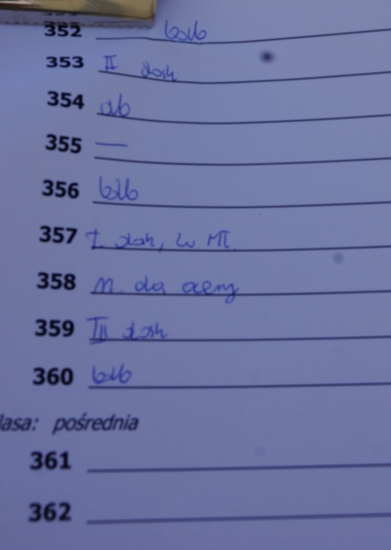 352 bdb
353 II dosk
354 db
355 —
356 bdb
357 I dosk, zw MŁ
358 n. do oceny
359 III dosk
360 bdb
lasa: pośrednia
361
362